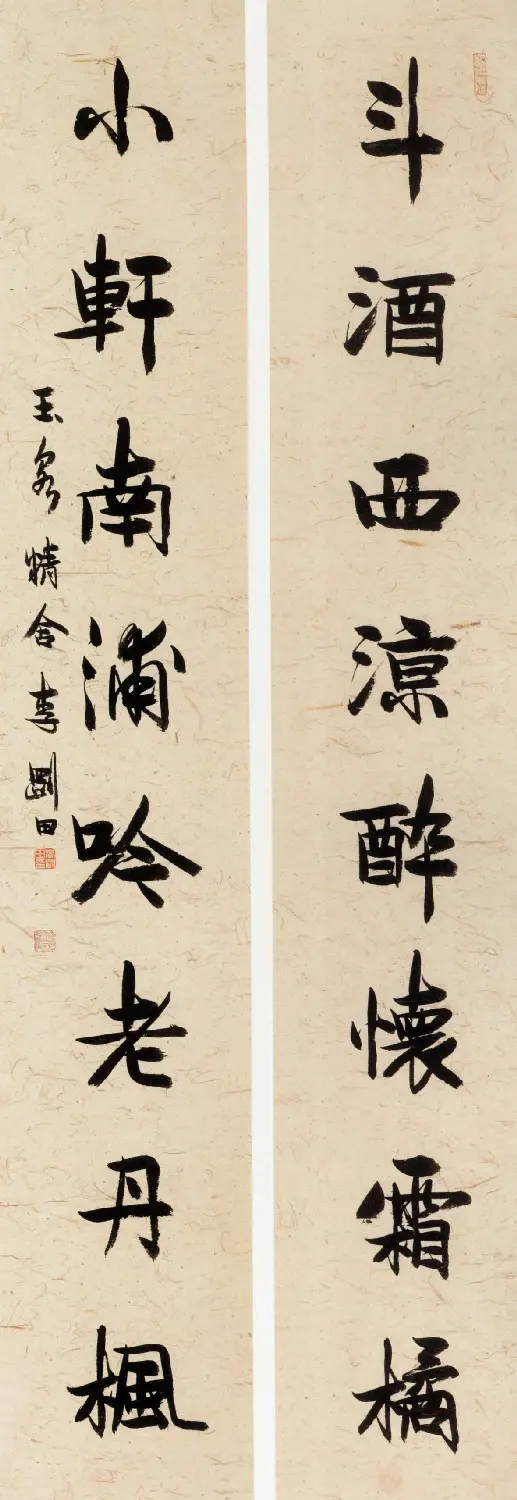 斗酒西涼醉懷霜橘
小軒南浦吟老丹楓
玉泉精舍李剛田